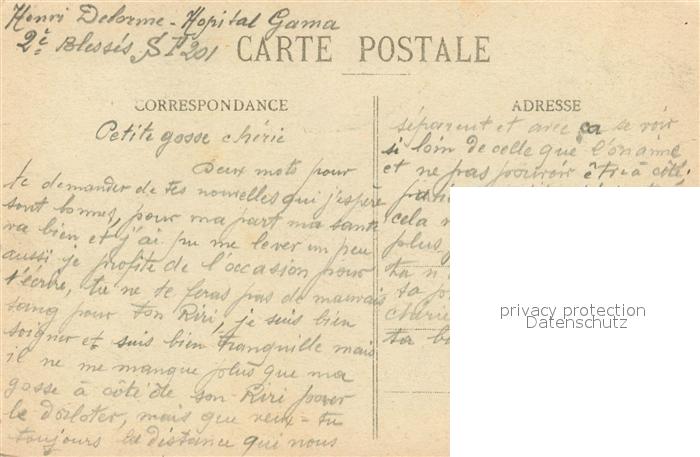 Henri Delorme - Hopital Gama
2e Blessés S I 201
CARTE POSTALE
CORRESPONDANCE
ADRESSE
Petite gosse chérie
Deux mots pour
te demander de tes nouvelles qui j'espère
sont bonnes, pour ma part ma santé
va bien et j'ai pu me lever un peu
aussi je profite de l'occasion pour
t'écrire, tu ne te feras pas de mauvais
sang pour ton Riri, je suis bien
soigner et suis bien tranquille mais
il ne me manque plus que ma
gosse à côté de son Riri pour
le dorloter, mais que veux-tu
toujours la distance qui nous
séparent et avec ça se voir
si loin de celle que l'on aime
et ne pas pouvoir être à côté;
cela
plus
ta
ta
chérie
ta
privacy protection
Datenschutz